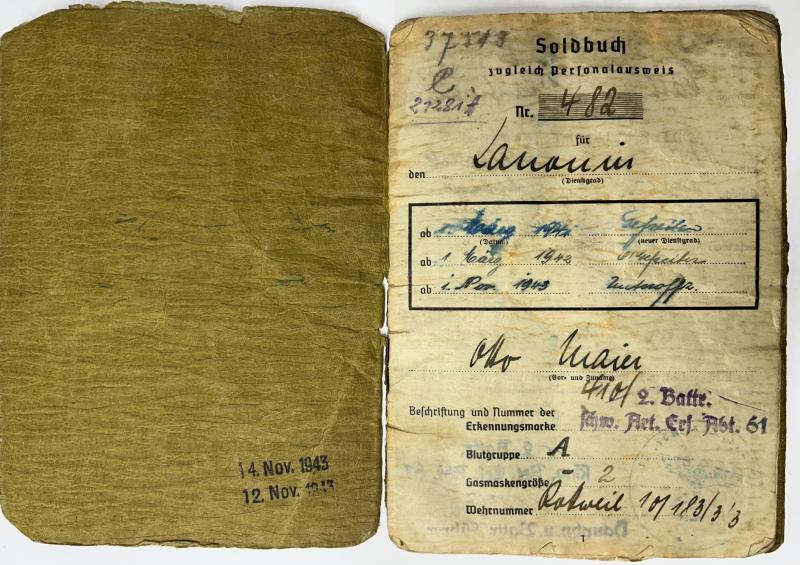 14. Nov. 1943
12. Nov. 1943
37513
Soldbuch
zugleich Personalausweis
Nr. 482
für
den Kanonier
(Dienstgrad)
ab 1. März 194 Gefreiten
(Datum) (neuer Dienstgrad)
ab 1 März 1943 O'Gefreiter
ab 1. Nov. 1943 Unteroffz.
Otto Maier
(Vor- und Zuname)
410/ 2. Battr.
Beschriftung und Nummer der
Erkennungsmarke schw. Art. Ers. Abt. 61
Blutgruppe A
Gasmaskengröße 2
Wehrnummer Rottweil 10/183/3/3